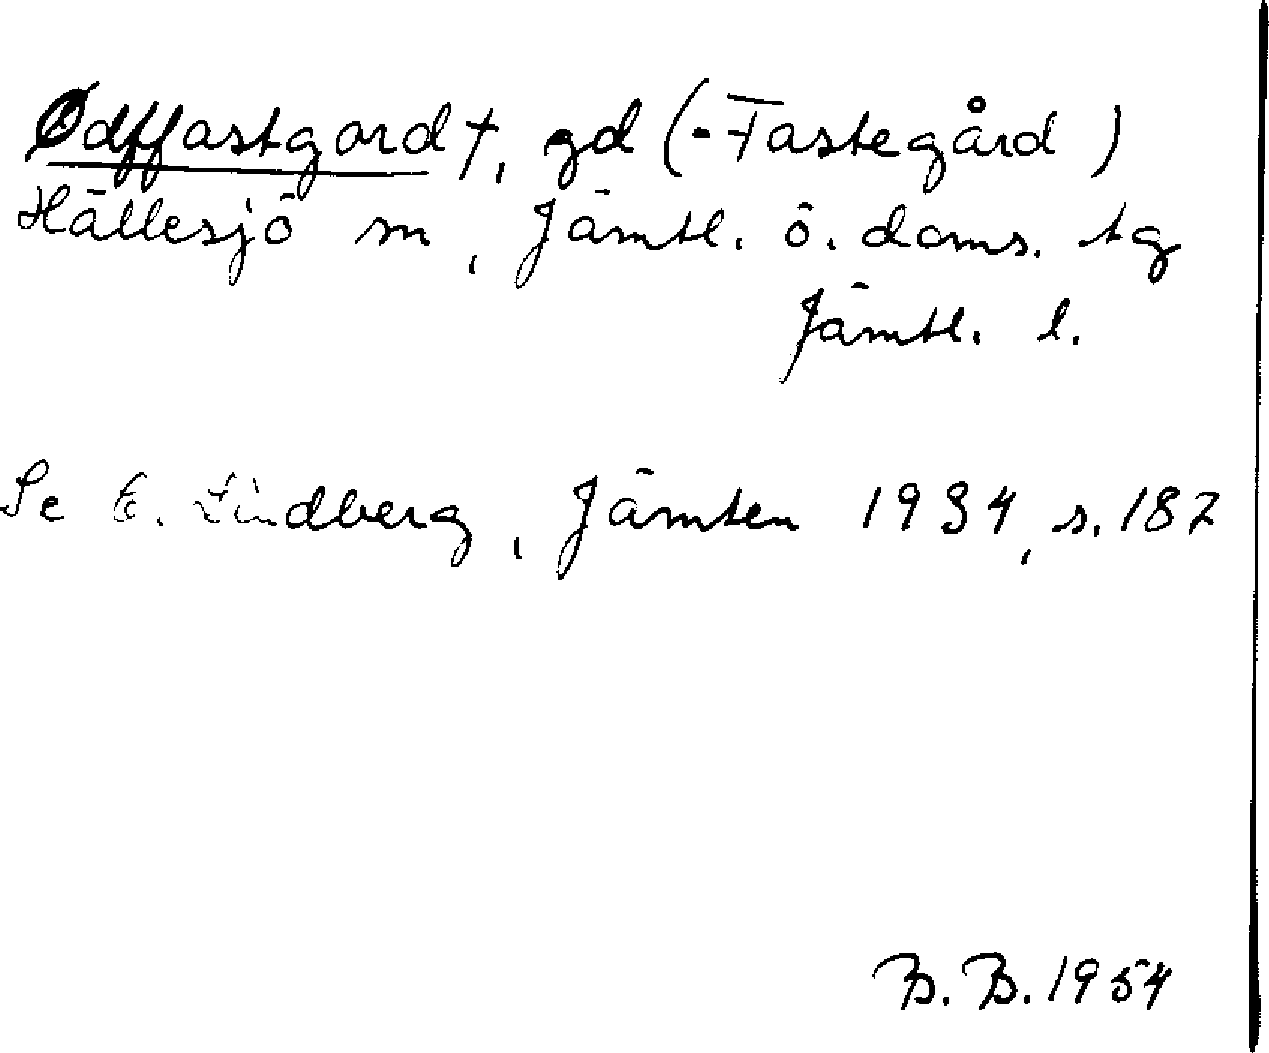 Ødffastgard†, gd (= Fastegård)
Hällesjö sn, Jämtl. ö. doms. tg
Jämtl. l.
Se E. Lindberg, Jämten 1934, s. 182
B. B. 1954